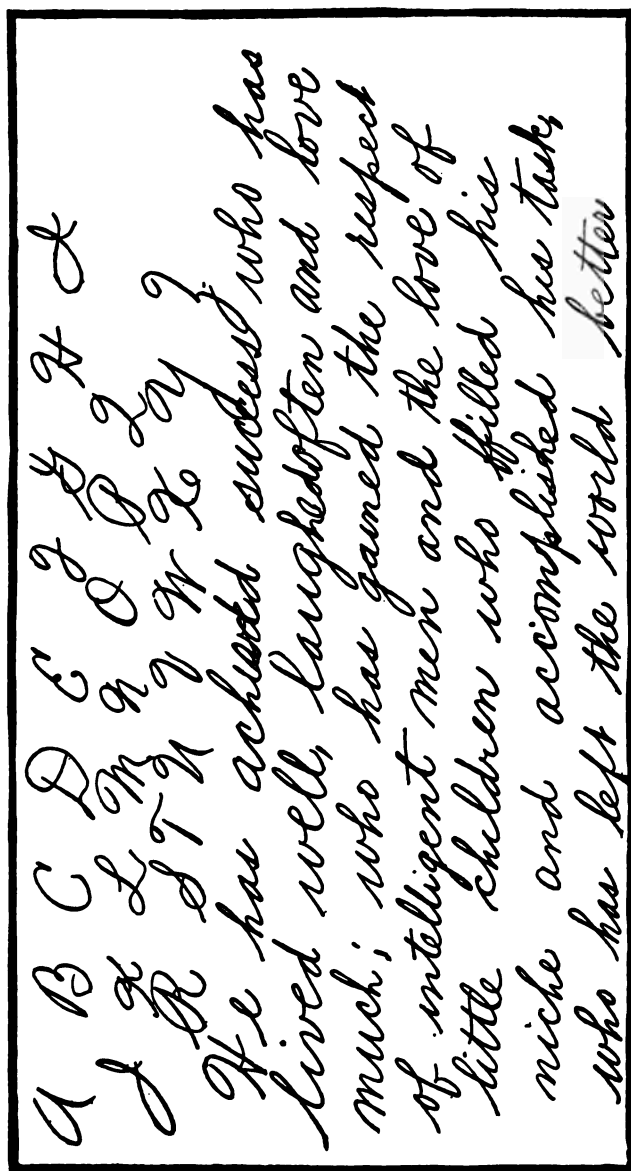 A B C D E F G H I
J K L M N O P Q
R S T U V W X Y Z
He has achieved success who has
lived well, laughed often and love
much; who has gained the respect
of intelligent men and the love of
little children who filled his
niche and accomplished his task,
who has left the world better